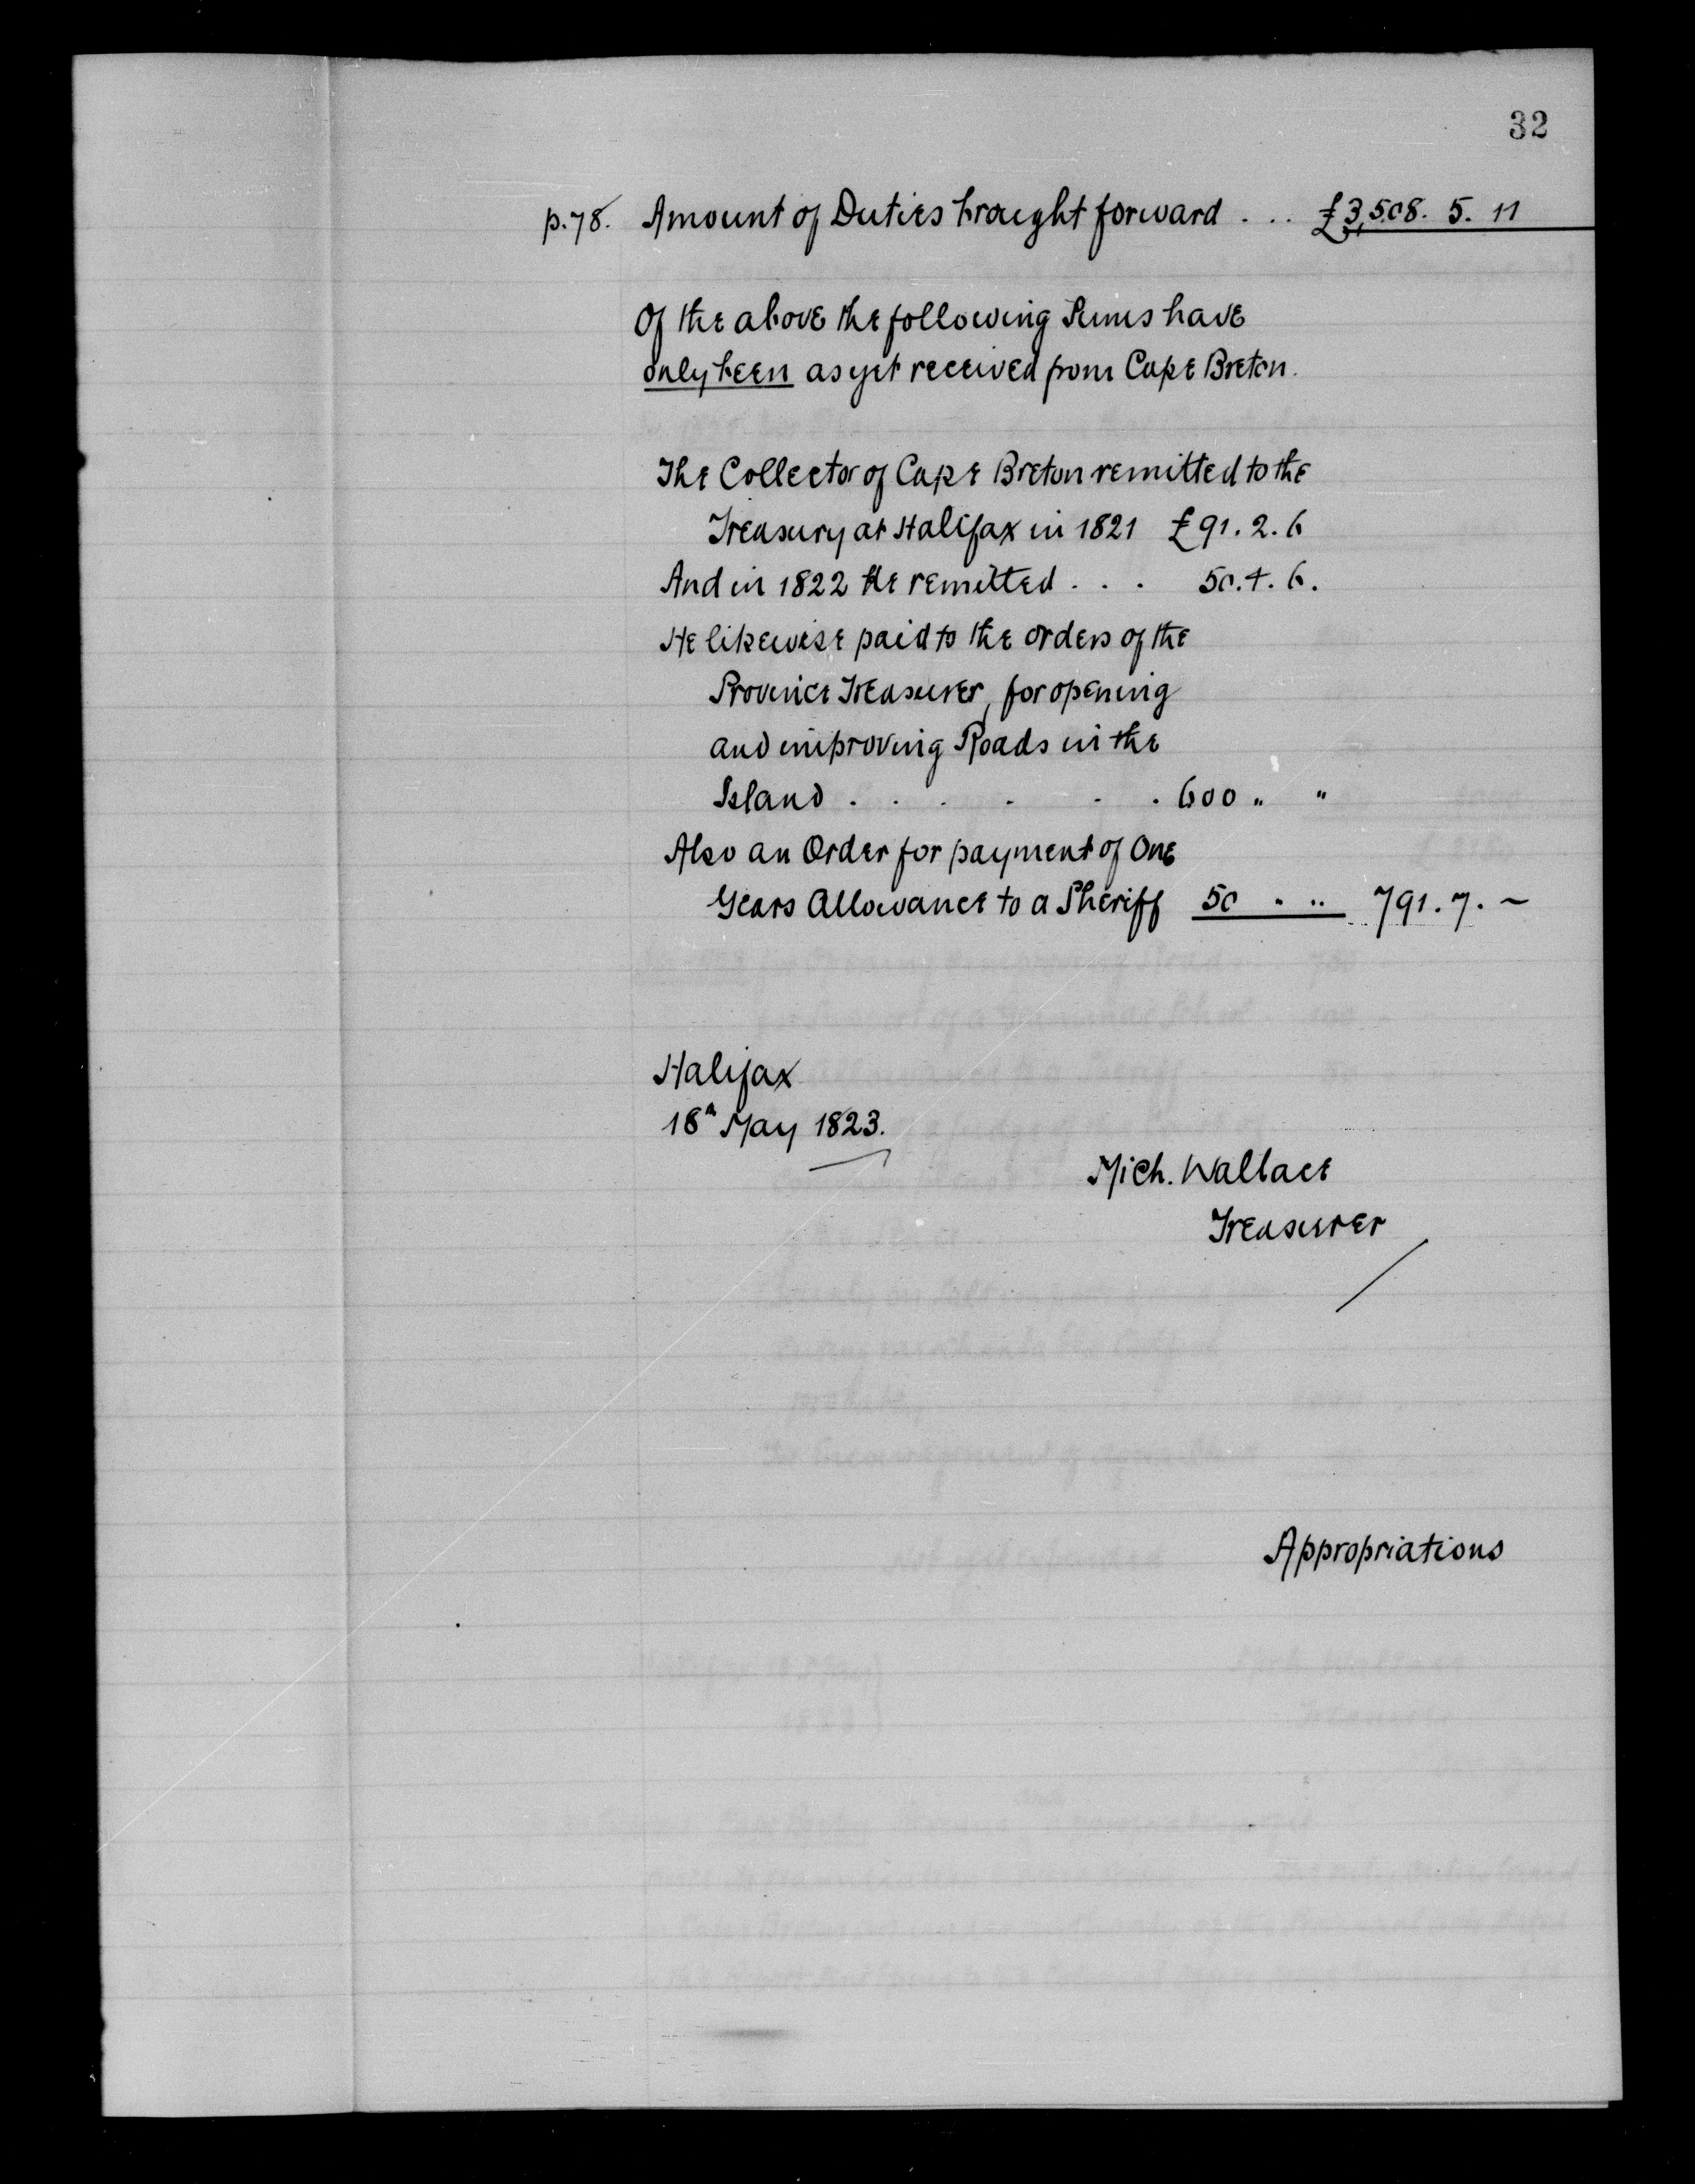 32
p.78. Amount of Duties brought forward . . . £3,508. 5. 11
Of the above the following Sums have
only been as yet received from Cape Breton.
The Collector of Cape Breton remitted to the
Treasury at Halifax in 1821 £91. 2. 6
And in 1822 He remitted . . . 50. 4. 6.
He likewise paid to the orders of the
Province Treasurer, for opening
and improving Roads in the
Island . . . . . . 600 " "
Also an Order for payment of One
Years Allowance to a Sheriff 50 " " 791. 7. ~
Halifax
18th May 1823.
Mich. Wallace
Treasurer
Appropriations